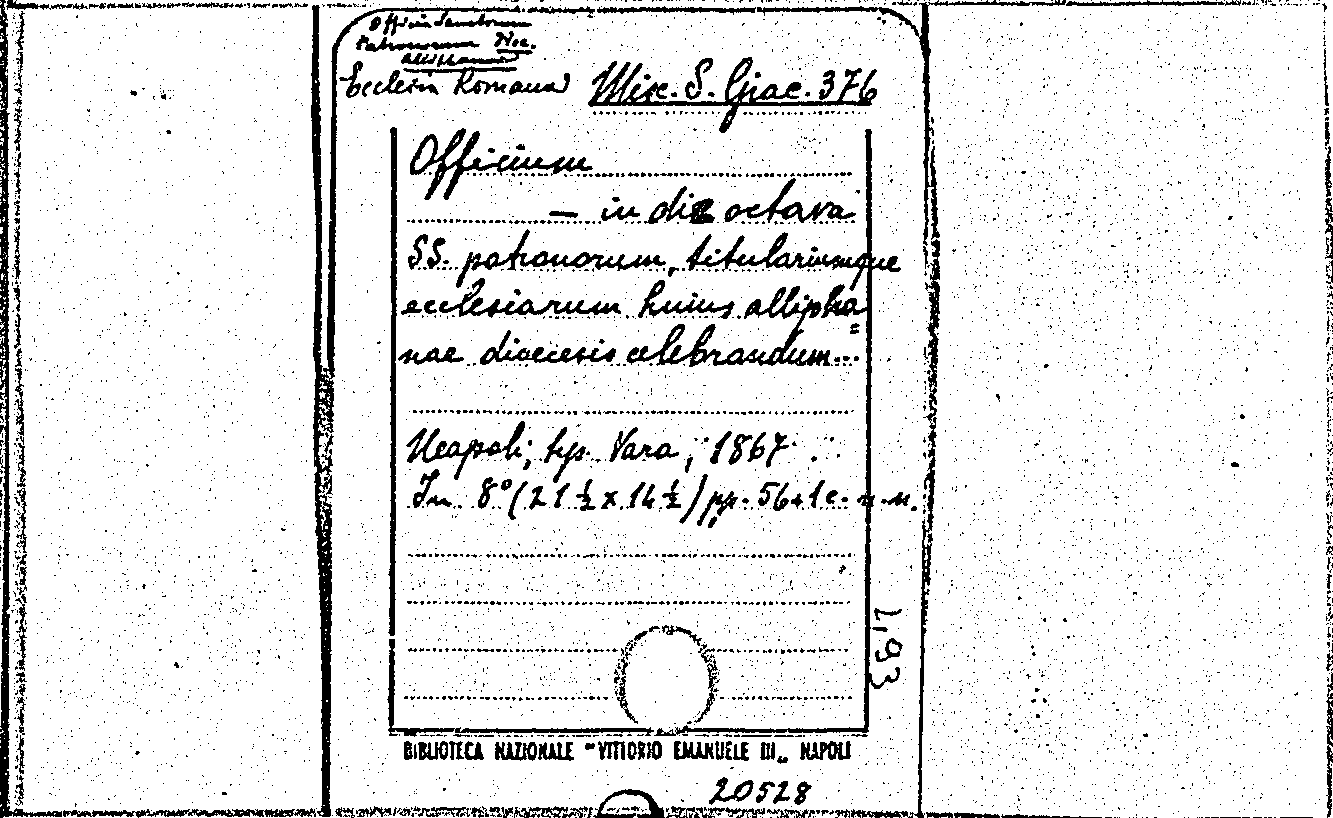 Officia Sanctorum
Patronorum Dioc.
Alliphanae
Ecclesia Romana Misc. S. Giac. 376
Officium
— in die octava
SS. patronorum, titulariumque
ecclesiarum huius allipha=
nae dioecesis celebrandum...
Neapoli, typ. Vara, 1867.
In 8° (21 ½ x 14 ½) pp. 56+1 c. n. n.
1,93
BIBLIOTECA NAZIONALE "VITTORIO EMANUELE III„ NAPOLI
20528